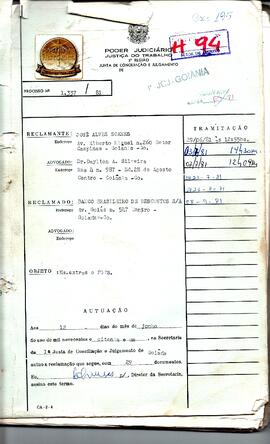 Cxs 195
PODER JUDICIÁRIO
JUSTIÇA DO TRABALHO
3ª REGIÃO
JUNTA DE CONCILIAÇÃO E JULGAMENTO
DE
# 94
1ª JCJ-GOIANIA
PROCESSO Nº 1.337 / 81
RECLAMANTE: JOSÉ ALVES
Endereço Av. Alberto Miguel n.260 Setor
Campinas - Goiânia-Go.
ADVOGADO: Dr.Daylton A. Silveira
Endereço Rua 4 n. 987
Centro - Goiânia-Go.
RECLAMADO: BANCO BRASILEIRO DE DESCONTOS S/A
Endereço Av. Goiás n. 547 Centro -
Goiânia-Go.
ADVOGADO:
Endereço
TRAMITAÇÃO
OBJETO
AUTUAÇÃO
Aos 12 dias do mês de junho
do ano de mil novecentos e oitenta e um, na Secretaria
da 1ª Junta de Conciliação e Julgamento de Goiânia
autuo a reclamação que segue, com 29 documentos.
Eu, Diretor da Secretaria,
assino este termo.